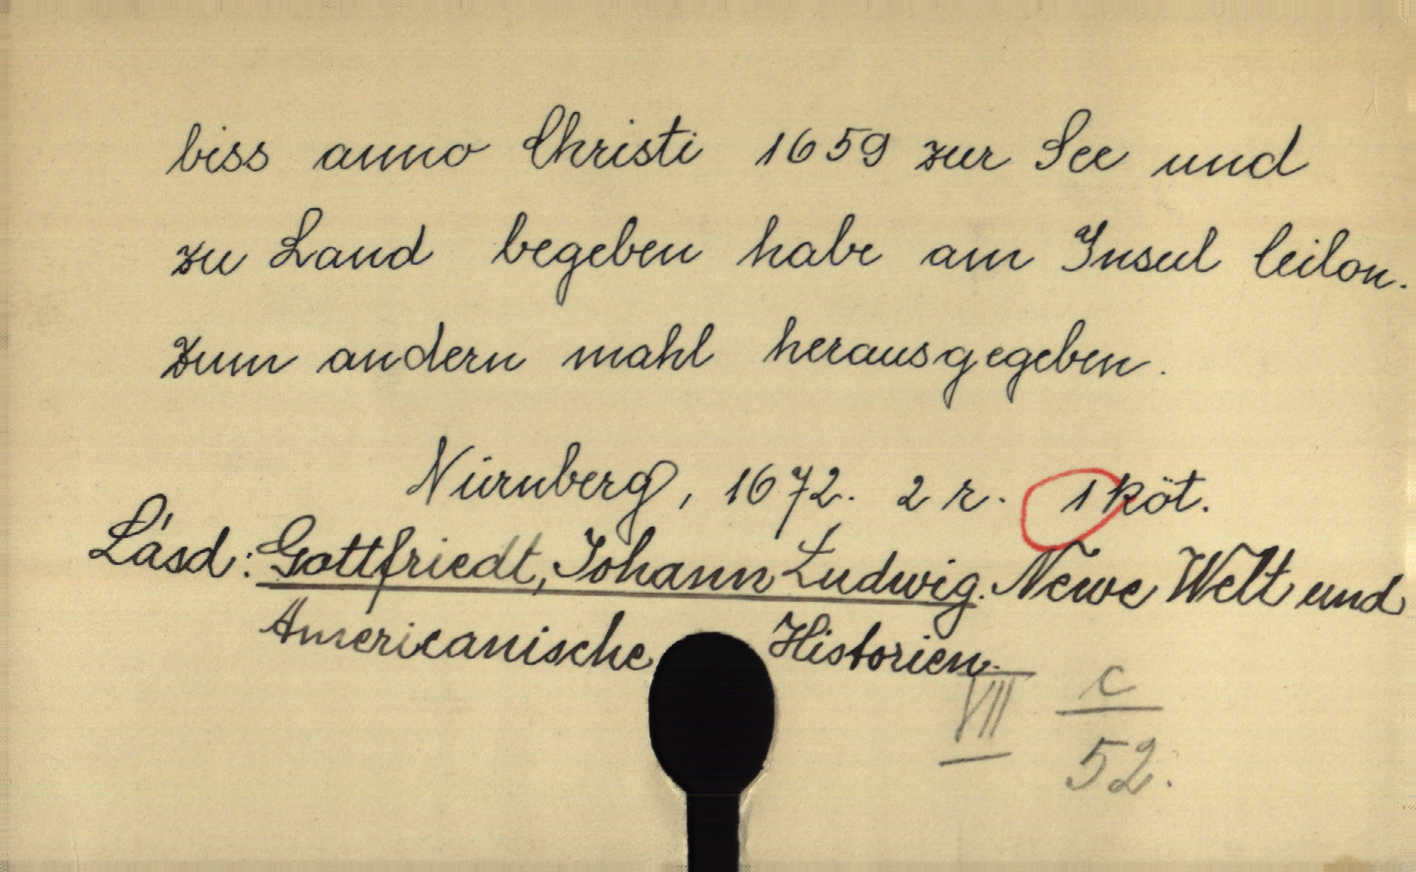 biss anno Christi 1659 zur See und
zu Land begeben habe am Insul Ceilon.
zum andern mahl herausgegeben.
Nürnberg, 1672. 2 r. 1 köt.
Lásd: Gottfriedt, Johann Ludwig. Newe Welt und
Americanische Historien.
VII c
52.